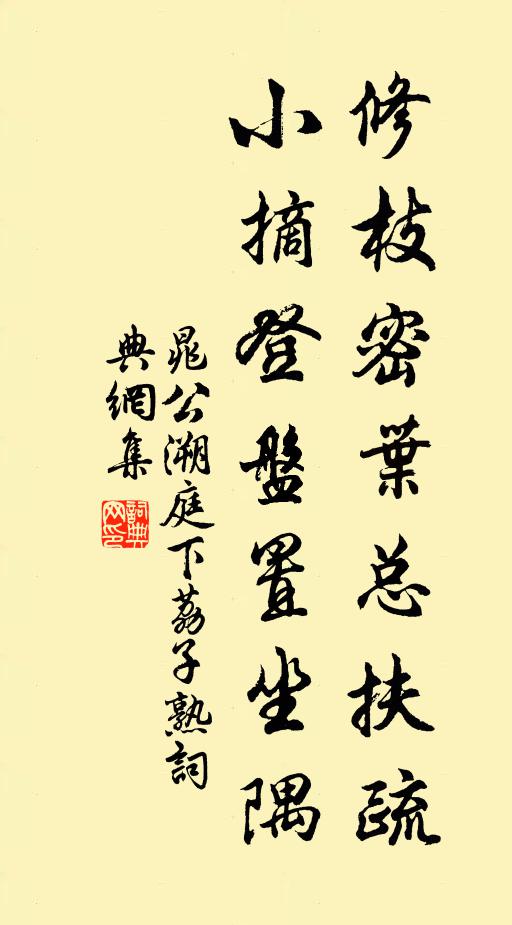 修枝密葉总扶疏
小摘登盤置坐隅
晁公溯庭下荔子熟詞
典網集
詞典
网印